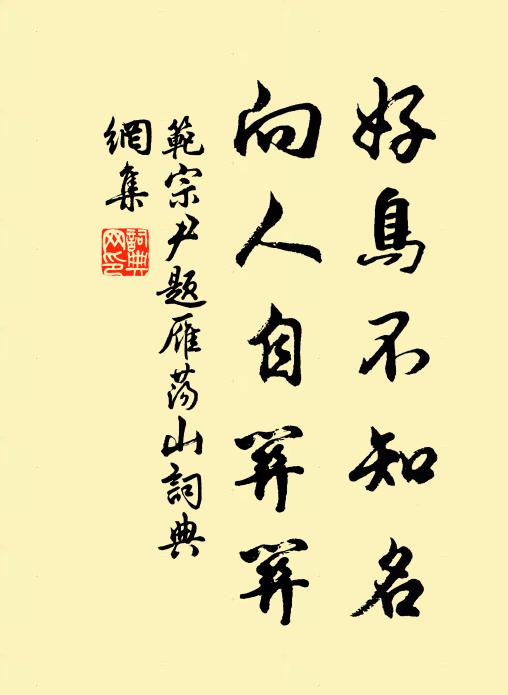 好鳥不知名
向人自關關
範宗尹題雁蕩山詞典
網集
詞典網印